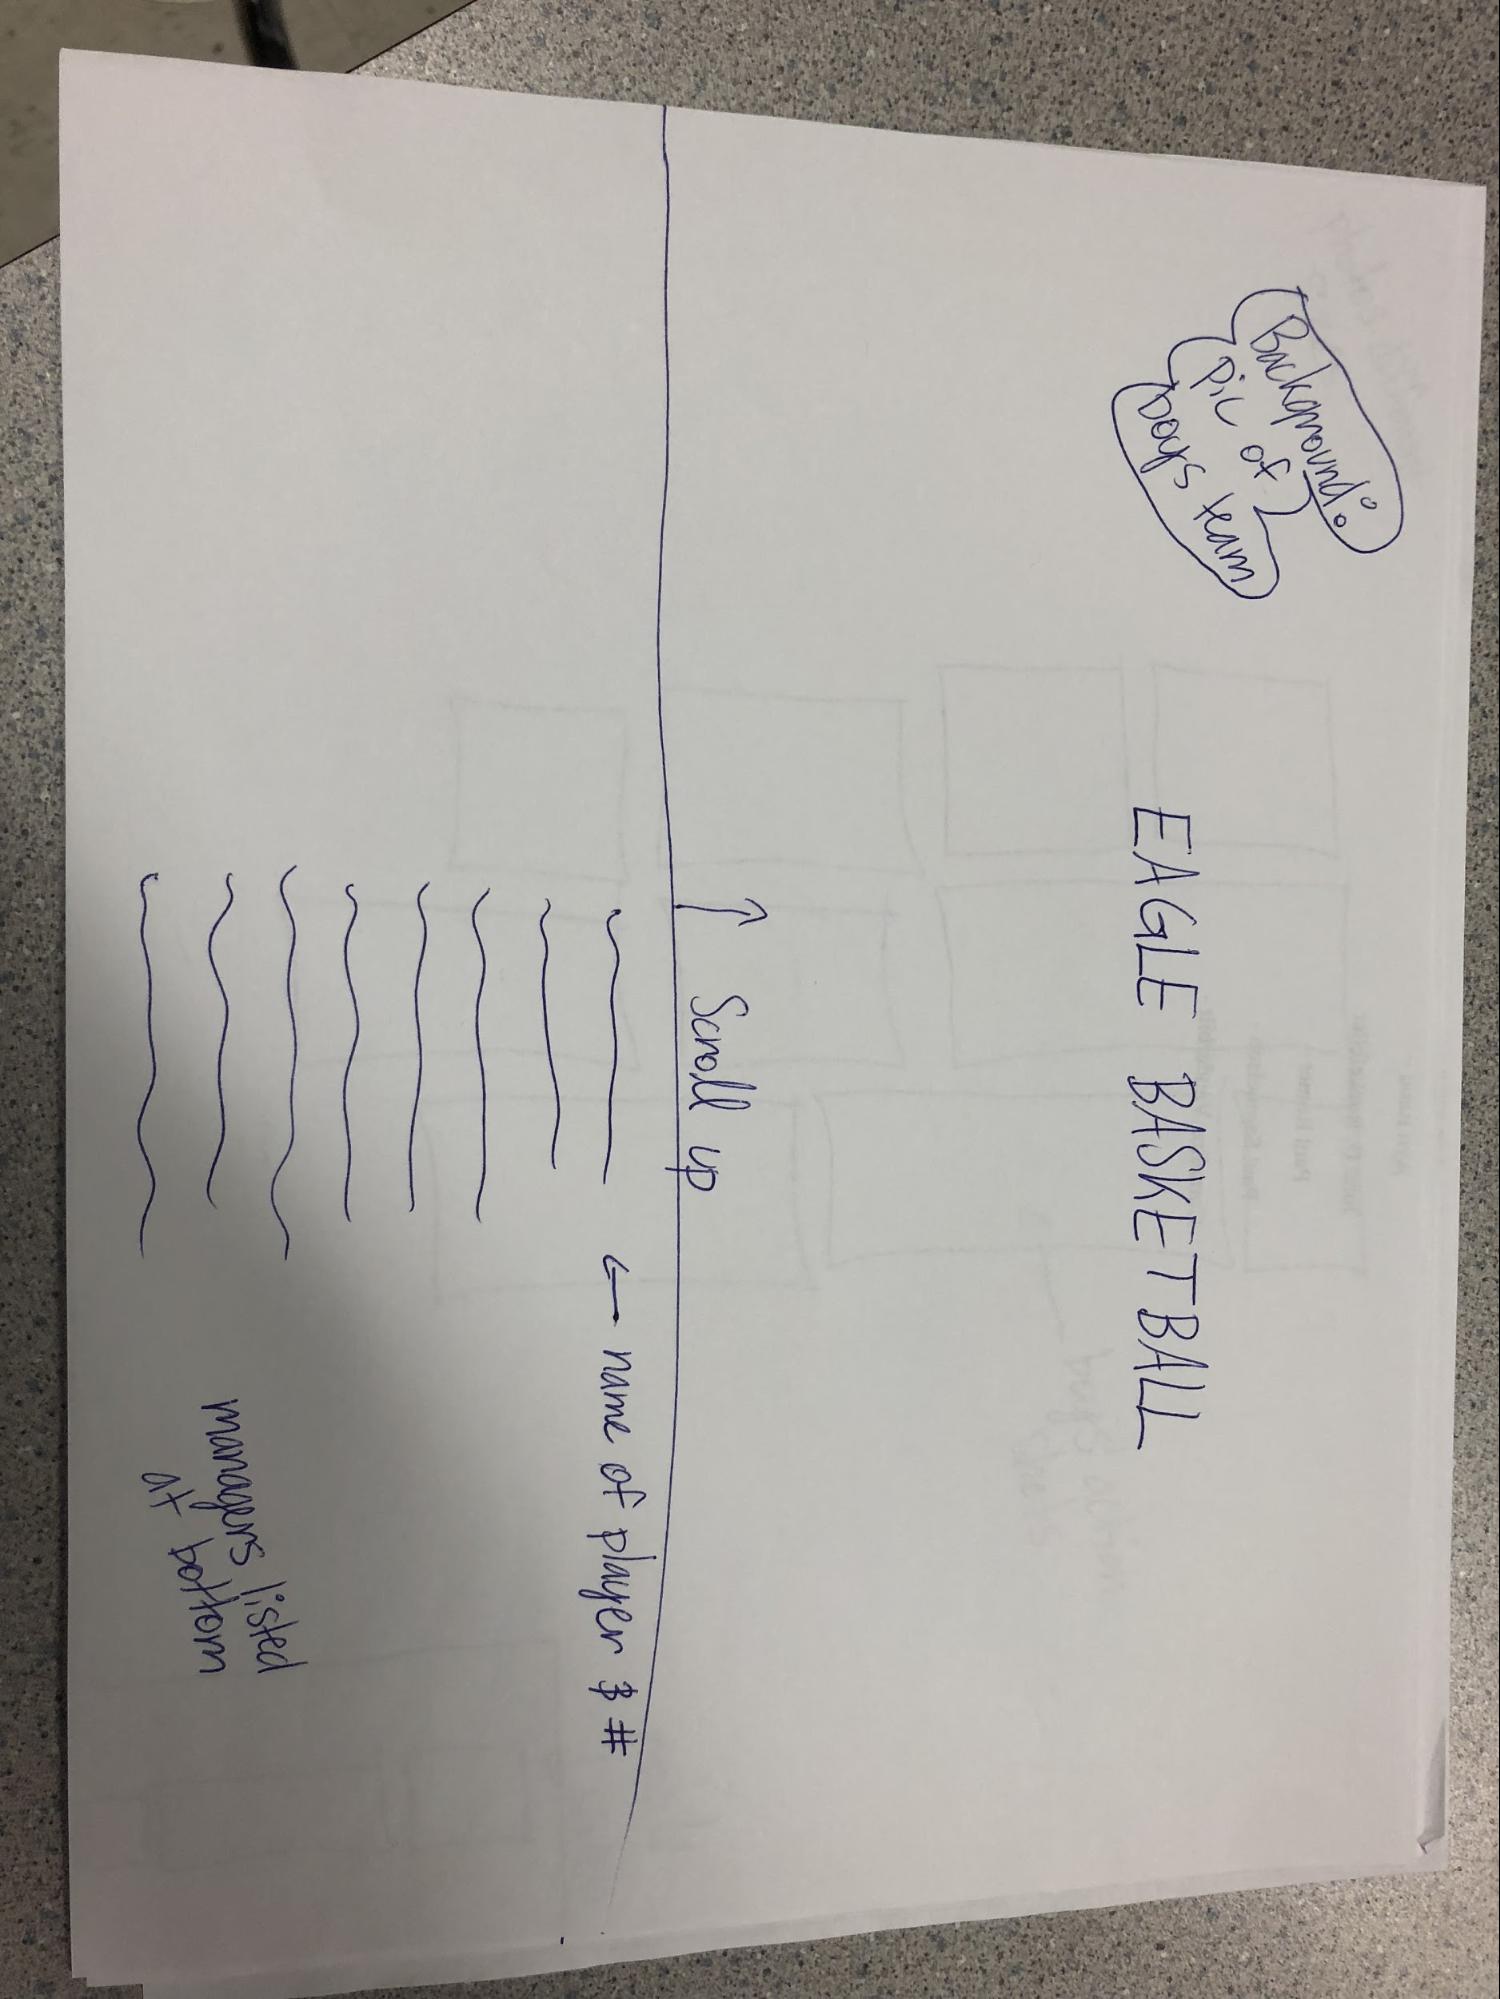 Background:
pic of
boys team
EAGLE BASKETBALL
↑ Scroll up
← name of player & #
managers listed
at bottom